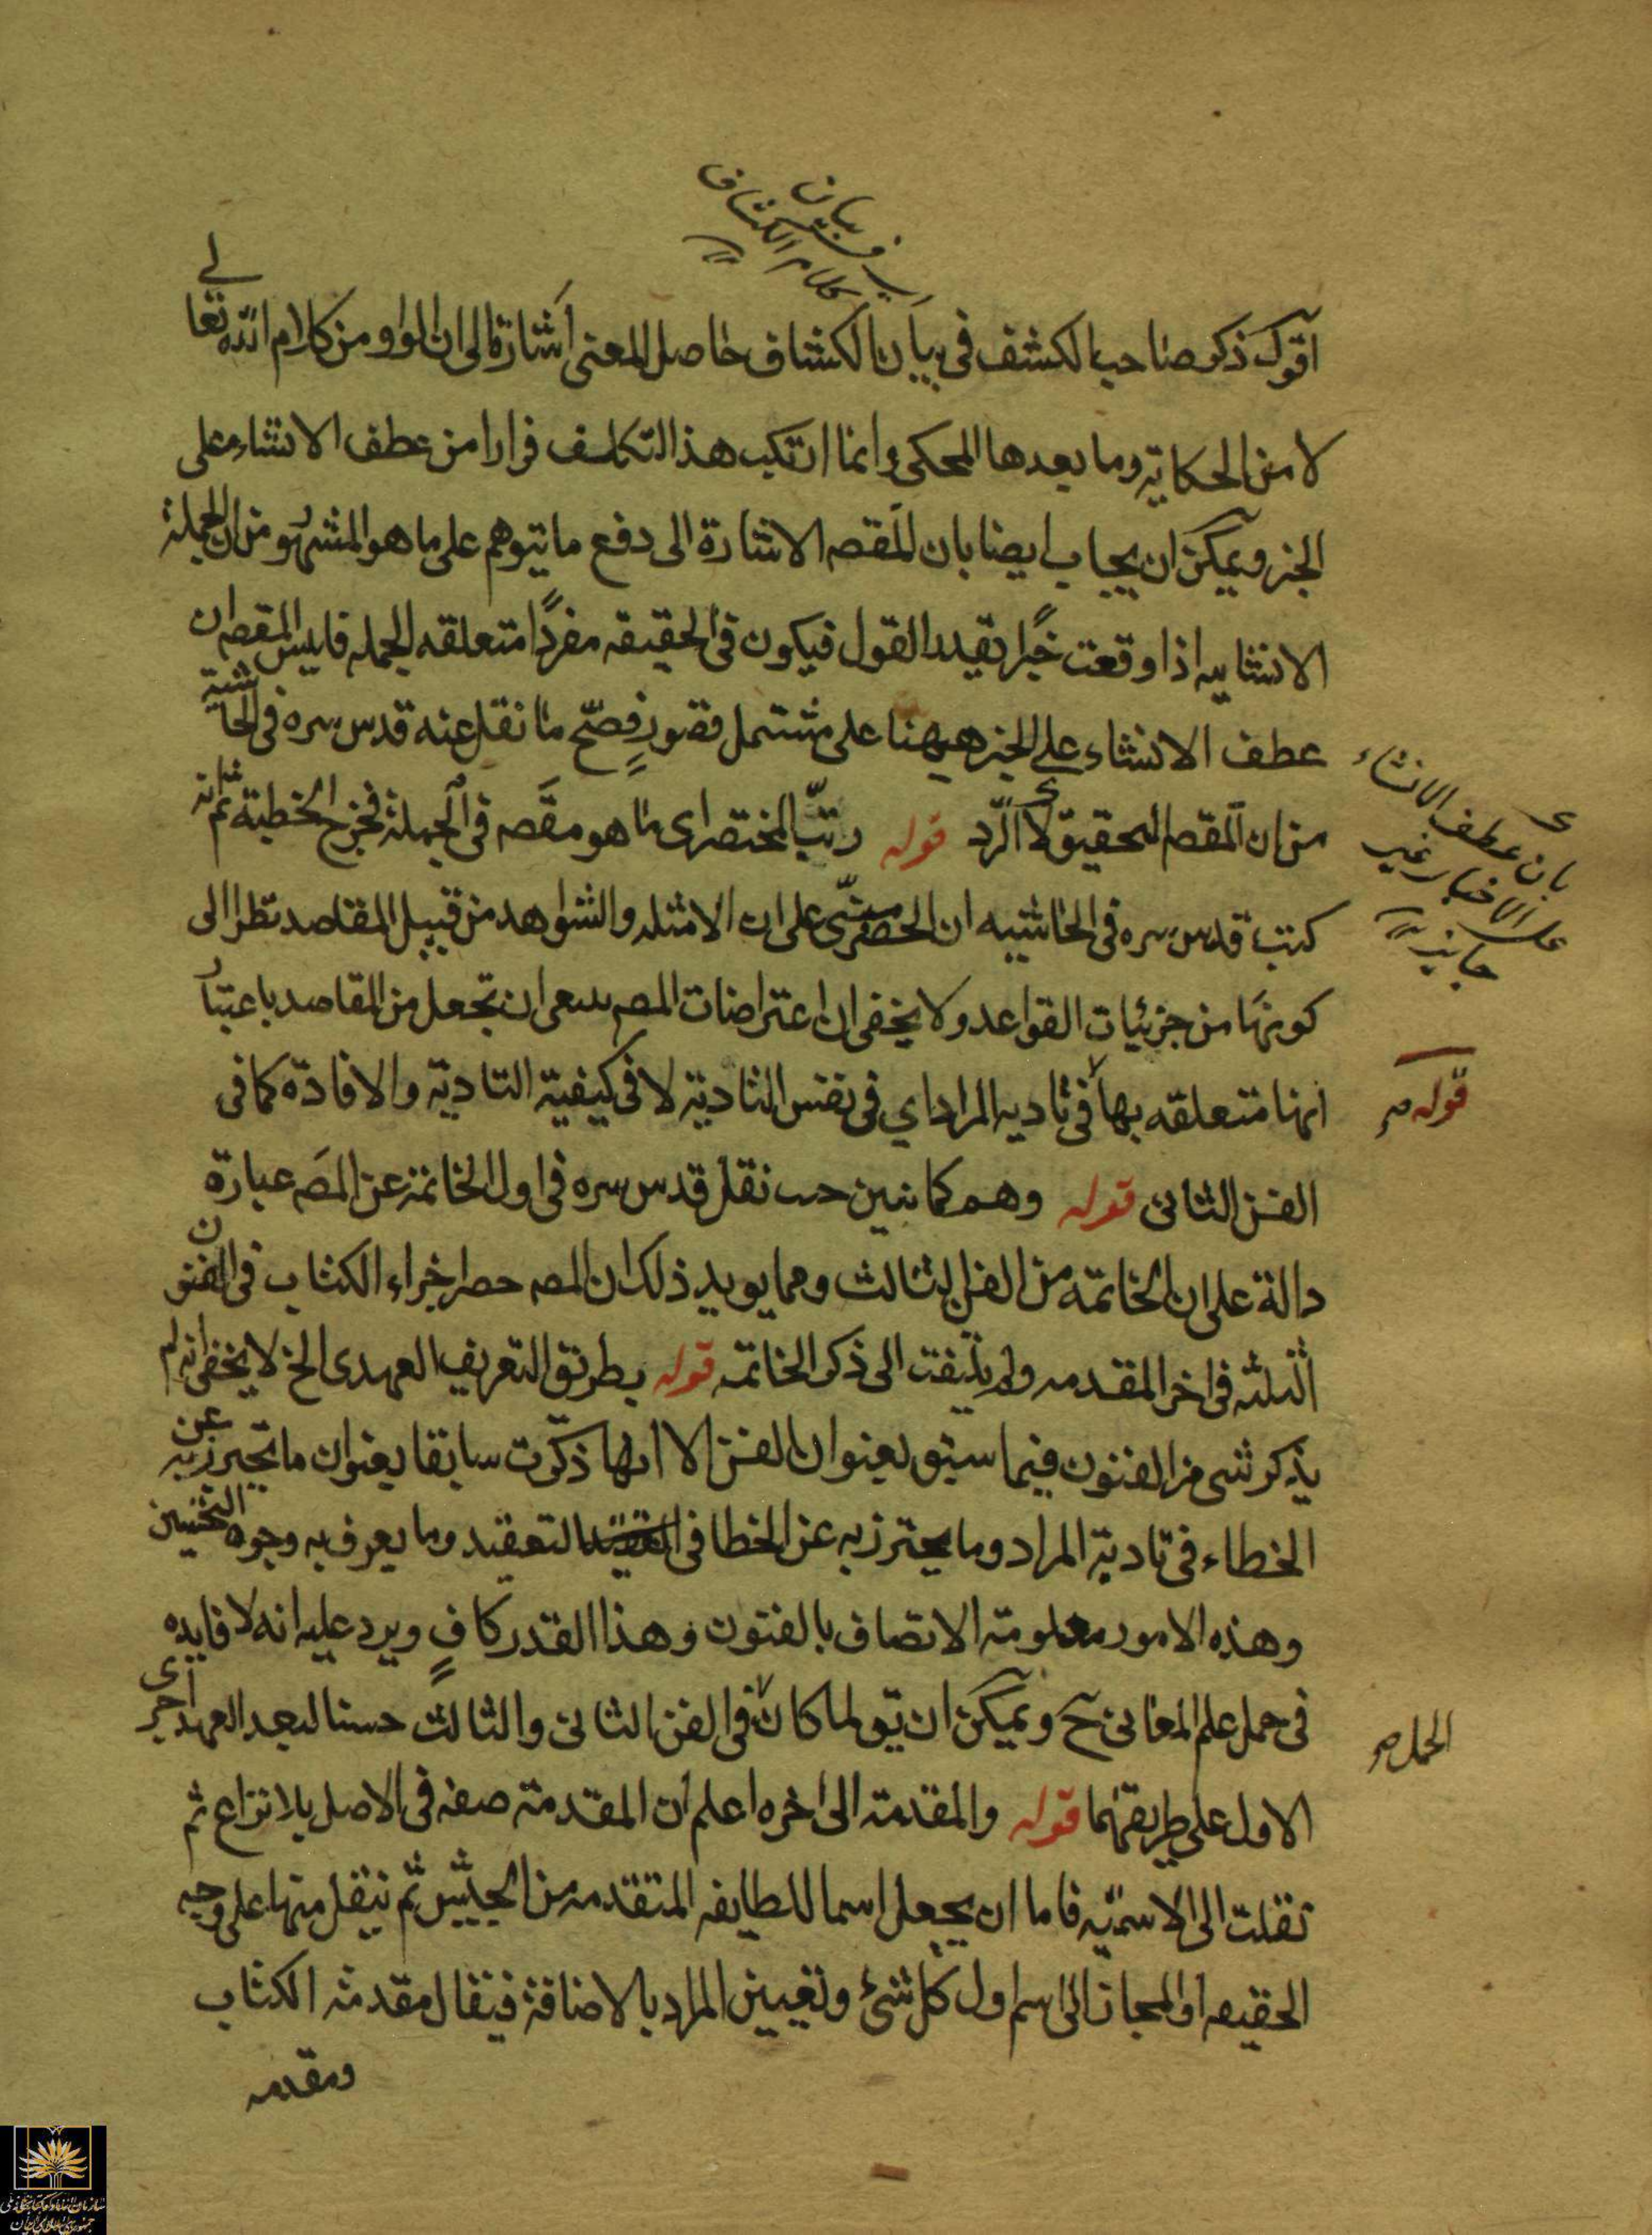 بيان
كلام الكشاف
اقول ذكر صاحب الكشف فى بيان الكشاف حاصل المعنى اشارة الى ان الواو من كلام الله تعالى
لا من الحكاية وما بعدها المحكى وانما ارتكب هذا التكلف فرارا من عطف الانشاء على
الخبر ويمكن ان يجاب ايضا بان المقصه الاشارة الى دفع ما يتوهم على ما هو المشهور من ان الجملة
الانشاييه اذا وقعت خبرا تقيد القول فيكون فى الحقيقه مفردا متعلقه الجمله فليس المقصه ان
عطف الانشاء على الخبر ههنا على مشتمل قصور فصح ما نقل عنه قدس سره فى الحاشية
من ان المقصه التحقيق لا الرد قوله رتب المختصر اى ما هو مقصه فى الجملة فخرج الخطبة ثم انه
كتب قدس سره فى الحاشيه ان الحصر مبنى على ان الامثله والشواهد من قبيل المقاصد نظرا الى
كونها من جزئيات القواعد ولا يخفى ان اعتراضات المصه ان تجعل من المقاصد باعتبار
انها متعلقه بها فى تاديه المراد اي فى نفس التادية لا فى كيفية التادية والافادة كما فى
الفن الثانى قوله وهم كما نبين نقل قدس سره فى اول الخاتمة عن المصه عبارة
دالة على ان الخاتمه من الفن الثالث ومما يويد ذلك ان المصه حصر اجزاء الكتاب فى الفنون
الثلثه فى اخر المقدمه ولم يلتفت الى ذكر الخاتمه قوله بطريق التعريف العهدى الخ لا يخفى انه لم
يذكر شى من الفنون فيما سبق بعنوان الفن الا انها ذكرت سابقا بعنوان ما يحترز به عن
الخطاء فى تادية المراد وما يحترز به عن الخطا فى التعقيد وما يعرف به وجوه التحسين
وهذه الامور معلومة الاتصاف بالفنون وهذا القدر كاف ويرد عليه انه لا فايده
فى حمل علم المعانى ح ويمكن ان يق لما كان فى الفن الثانى والثالث حسنا لبعد العهد اجرى
الاول على طريقهما قوله والمقدمة الى اخره اعلم ان المقدمة صفه فى الاصل بلا نزاع ثم
نقلت الى الاسميه فاما ان يجعل اسما للطايفه المتقدمه من الجيش ثم ينقل منها على وجه
الحقيقه او المجاز الى اسم اول كل شئ وتعيين المراد بالاضافة فيقال مقدمة الكتاب
ومقدمه
بان عطف الانشاء
على الاخبار غير
جايز
قوله صح
الحمل صح